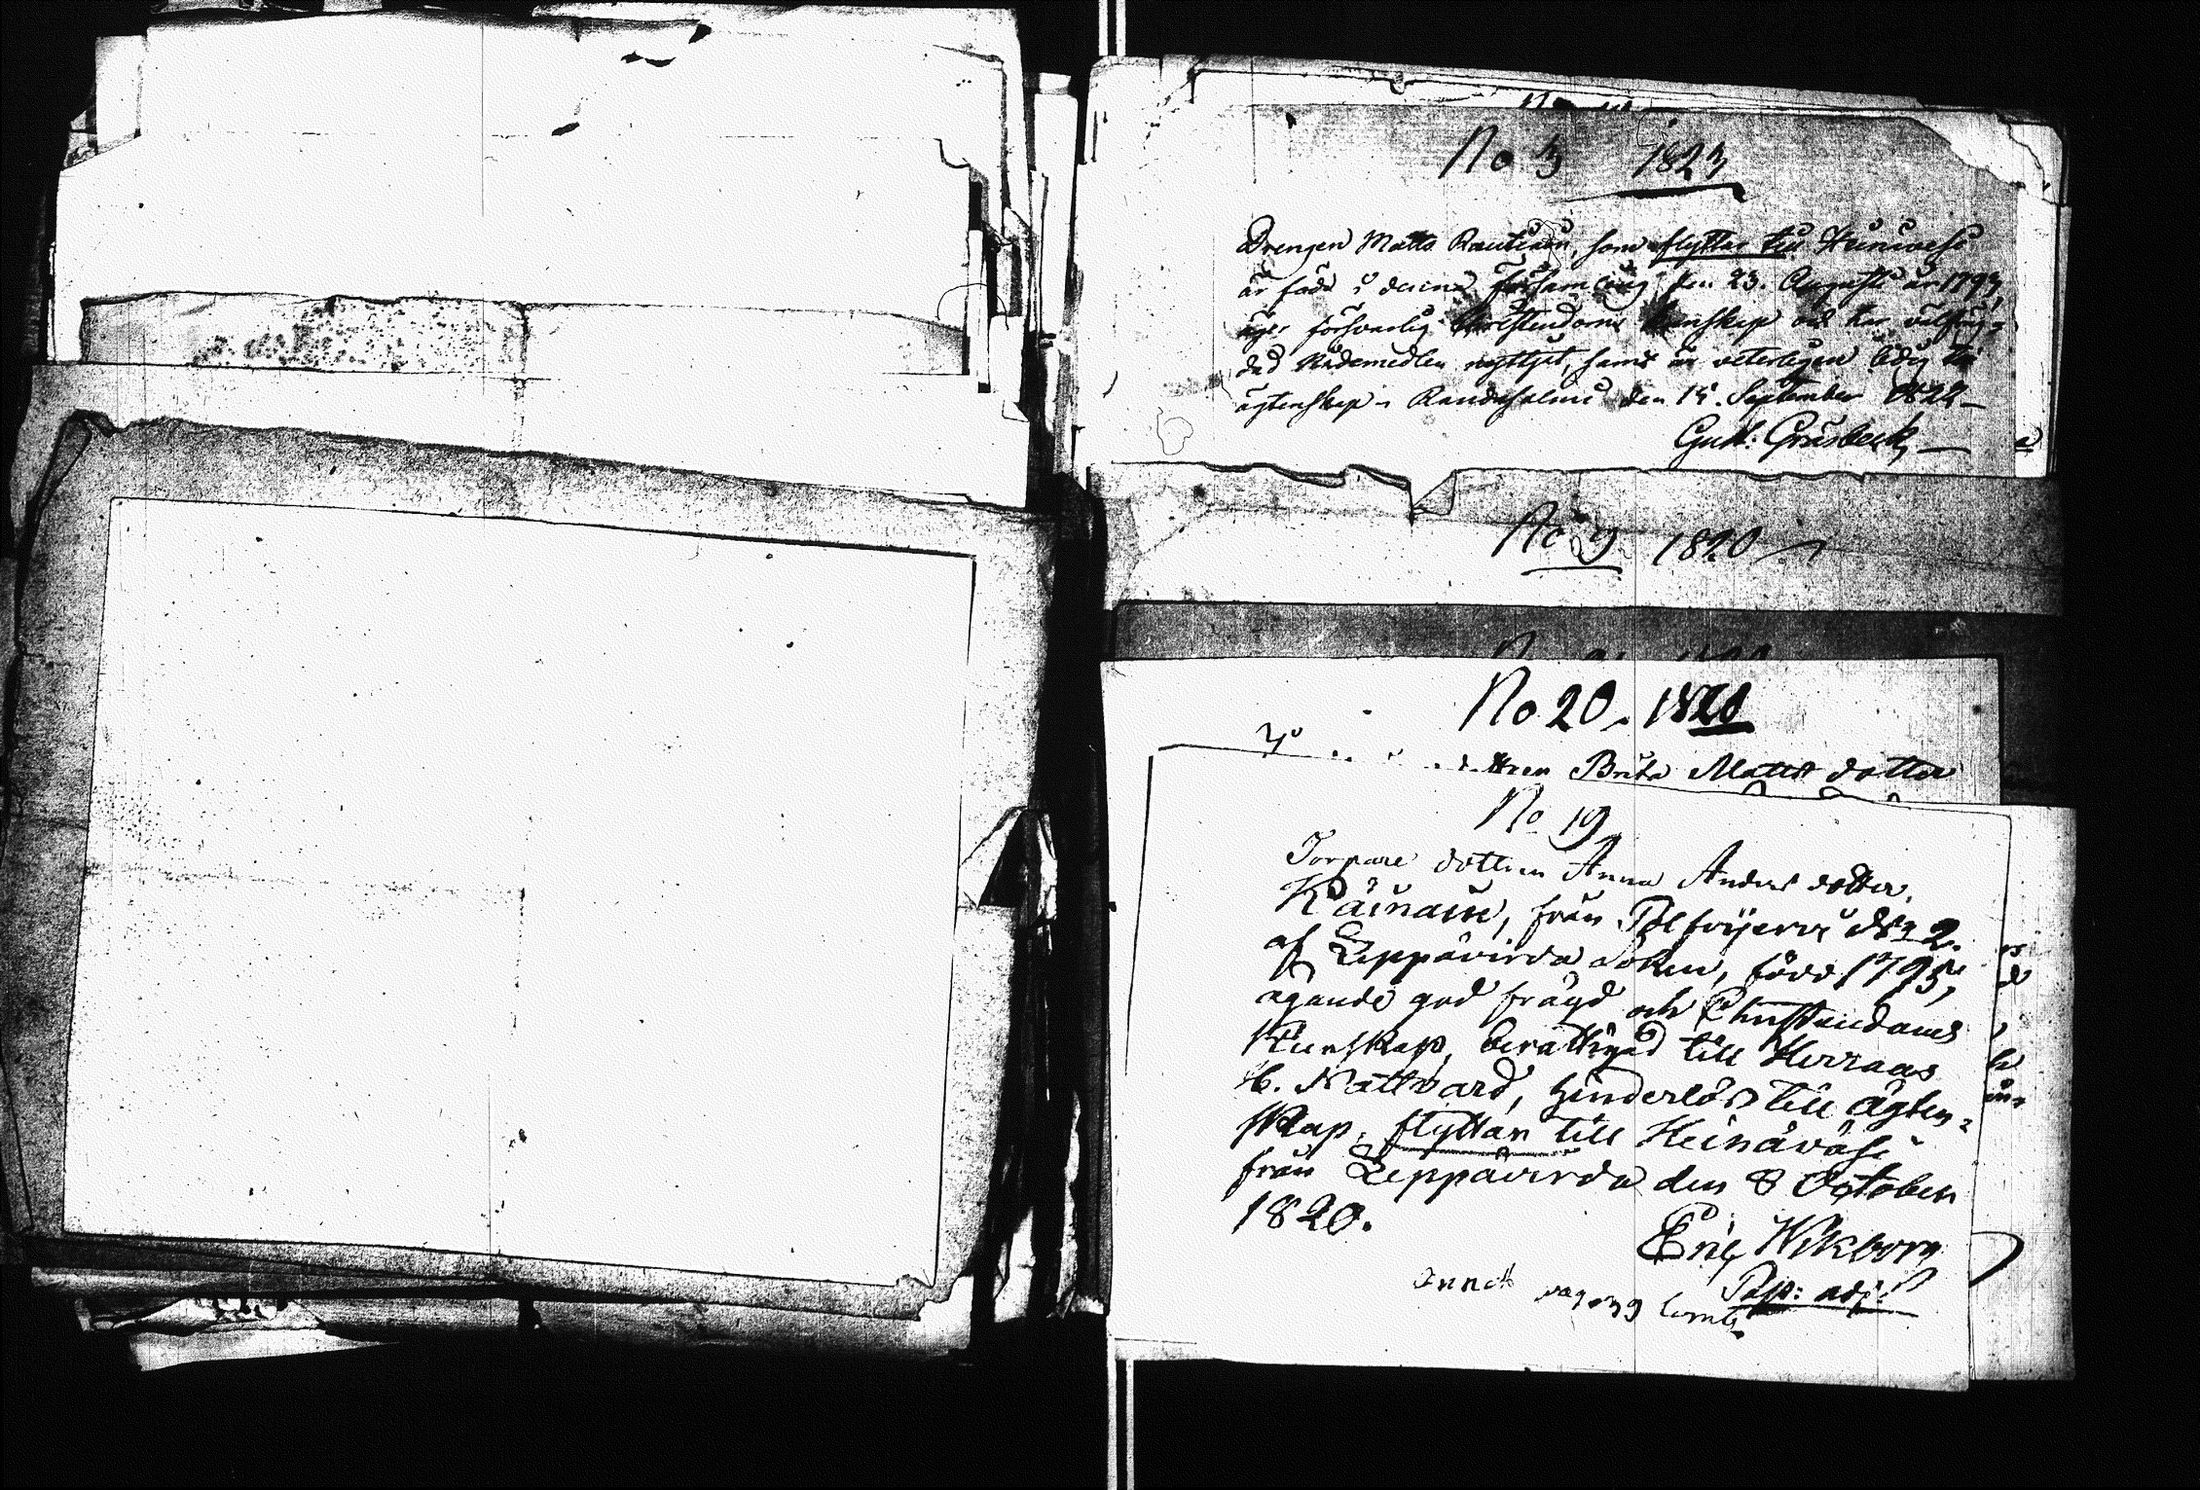 No 3 1823
Drengen Matts Rautiain, som flyttar till Heinävesi
är född i denna församling den 23. Augusti år 1793,
äger försvarlig Christendoms kunskap och har
Nådemedlen nyttjat, samt är veterligen ledig till
ägtenskap. Randasalmi den 15. September 1822
Gust: Gråsbeck
No 9 1820
No 20. 1820
Brita Matts dotter
No 19
Torpare dottren Anna Anders dotter
Räinain, från No 2.
af Leppävirda Sokn, född 1795,
ägande god frägd och Christendoms
Kunskap, berättigad till Herrans
H. Nattvard, hinderlös till ägten-
skap, flyttar till Heinäväsi
från Leppävirda den 8 October
1820.
Eric Wikborg
Past: adj: